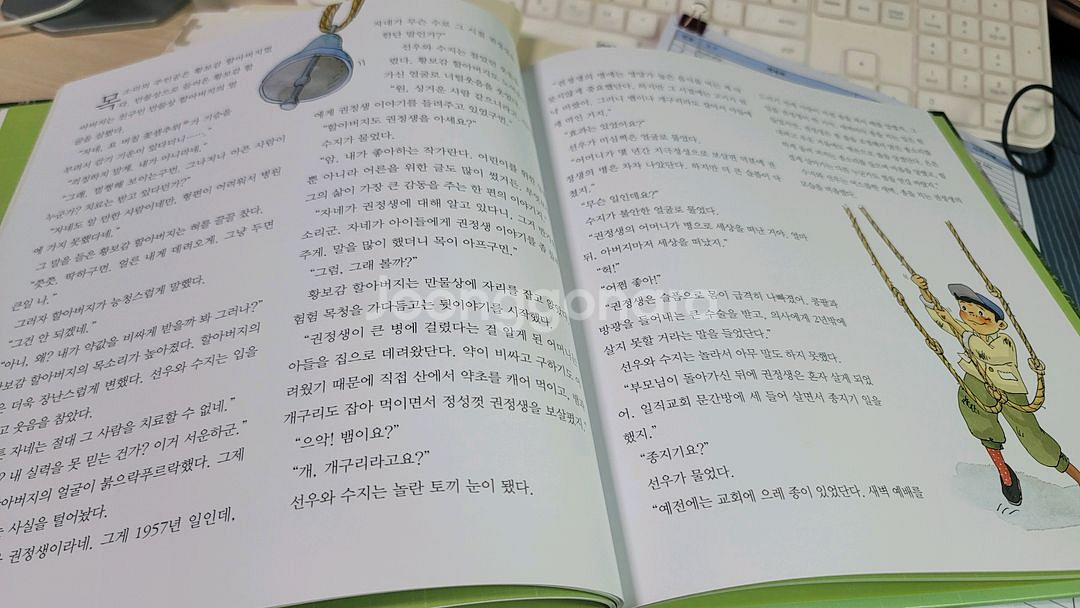 소리의 주인공은 황보감 할아버지였
다. 만물상으로 들어온 황보감 할
아버지는 친구인 만물상 할아버지의 멸
"자네, 요 며칠
부려서 감기 기운이 있다더니—."
"걱정하지 말게. 내가 아니라네."
"그래, 멀쩡해 보이는구먼. 그나저나 아픈 사람이
누군가? 치료는 받고 있다던가?"
"자네도 알 만한 사람이네만, 형편이 어려워서 병원
에 가지 못했다네."
그 말을 들은 황보감 할아버지는 혀를 끌끌 찼다.
"쯧쯧, 딱하구먼. 얼른 내게 데려오게. 그냥 두면
큰일 나."
그러자 할아버지가 능청스럽게 말했다.
"그건 안 되겠네."
"아니, 왜? 내가 약값을 비싸게 받을까 봐 그러나?"
보감 할아버지의 목소리가 높아졌다. 할아버지의
은 더욱 장난스럽게 변했다. 선우와 수지는 입을
고 웃음을 참았다.
자네는 절대 그 사람을 치료할 수 없네."
? 내 실력을 못 믿는 건가? 이거 서운하군."
아버지의 얼굴이 붉으락푸르락했다. 그제
는 사실을 털어놨다.
권정생이라네. 그게 1957년 일인데,
자네가 무슨 수로 그 시절
한단 말인가?"
선우와 수지는
렸다. 황보감 할아버지도
가신 얼굴로 너털웃음을
"원, 싱거운 사람 같으니라고.
에게 권정생 이야기를 들려주고 있었구먼."
"할아버지도 권정생을 아세요?"
수지가 물었다.
"암. 내가 좋아하는 작가란다. 어린이를 위한
뿐 아니라 어른을 위한 글도 많이 썼거든. 무엇
그의 삶이 가장 큰 감동을 주는 한 편의 이야기지
"자네가 권정생에 대해 알고 있다니, 그거 반가
소리군. 자네가 아이들에게 권정생 이야기를 좀
주게. 말을 많이 했더니 목이 아프구먼."
"그럼, 그래 볼까?"
황보감 할아버지는 만물상에 자리를 잡고 앉
험험 목청을 가다듬고는 뒷이야기를 시작했다.
"권정생이 큰 병에 걸렸다는 걸 알게 된 어머니는
아들을 집으로 데려왔단다. 약이 비싸고 구하기도
려웠기 때문에 직접 산에서 약초를 캐어 먹이고, 뱀과
개구리도 잡아 먹이면서 정성껏 권정생을 보살폈지."
"으악! 뱀이요?"
"개, 개구리라고요?"
선우와 수지는 놀란 토끼 눈이 됐다.
"권정생의 병에는 영양가 높은 음식을 먹는 게
"효과는 있었어요?"
선우가 미심쩍은 얼굴로 물었다.
"어머니가 몇 년간 지극정성으로 보살핀 덕분에 권
정생의 병은 차차 나았단다. 하지만 더 큰 슬픔이 닥
쳤지."
"무슨 일인데요?"
수지가 불안한 얼굴로 물었다.
"권정생의 어머니가 병으로 세상을 떠난 거야. 얼마
뒤, 아버지마저 세상을 떠났지."
"헉!"
"어쩜 좋아!"
"권정생은 슬픔으로 몸이 급격히 나빠졌어. 콩팥과
방광을 들어내는 큰 수술을 받고, 의사에게 2년밖에
살지 못할 거라는 말을 들었단다."
선우와 수지는 놀라서 아무 말도 하지 못했다.
"부모님이 돌아가신 뒤에 권정생은 혼자 살게 되었
어. 일직교회 문간방에 세 들어 살면서 종지기 일을
했지."
"종지기요?"
선우가 물었다.
"예전에는 교회에 으레 종이 있었단다. 새벽 예배를
Joonggonara